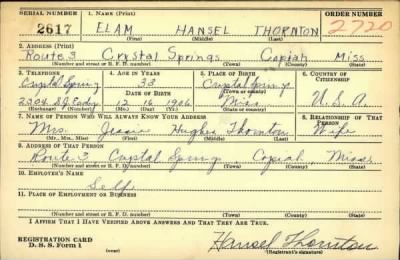 SERIAL NUMBER 1. NAME (Print) ORDER NUMBER
2617 ELAM HANSEL THORNTON 2720
(First) (Middle) (Last)
2. ADDRESS (Print)
Route 3 Crystal Springs Copiah Miss
(Number and street or R. F. D. number) (Town) (County) (State)
3. TELEPHONE 4. AGE IN YEARS 5. PLACE OF BIRTH 6. COUNTRY OF CITIZENSHIP
Crystal Spring 33 Crystal Spring
DATE OF BIRTH (Town or county)
2204 12 16 1906 Miss U.S.A.
(Exchange) (Number) (Mo.) (Day) (Yr.) (State or country)
7. NAME OF PERSON WHO WILL ALWAYS KNOW YOUR ADDRESS 8. RELATIONSHIP OF THAT PERSON
Mrs. Jessie Hughes Thornton Wife
(Mr., Mrs., Miss) (First) (Middle) (Last)
9. ADDRESS OF THAT PERSON
Route 3 Crystal Spring, Copiah, Miss
(Number and street or R. F. D. number) (Town) (County) (State)
10. EMPLOYER'S NAME
Self
11. PLACE OF EMPLOYMENT OR BUSINESS
(Number and street or R. F. D. number) (Town) (County) (State)
I AFFIRM THAT I HAVE VERIFIED ABOVE ANSWERS AND THAT THEY ARE TRUE.
REGISTRATION CARD
D. S. S. Form 1 Hansel Thornton
(Registrant's signature)